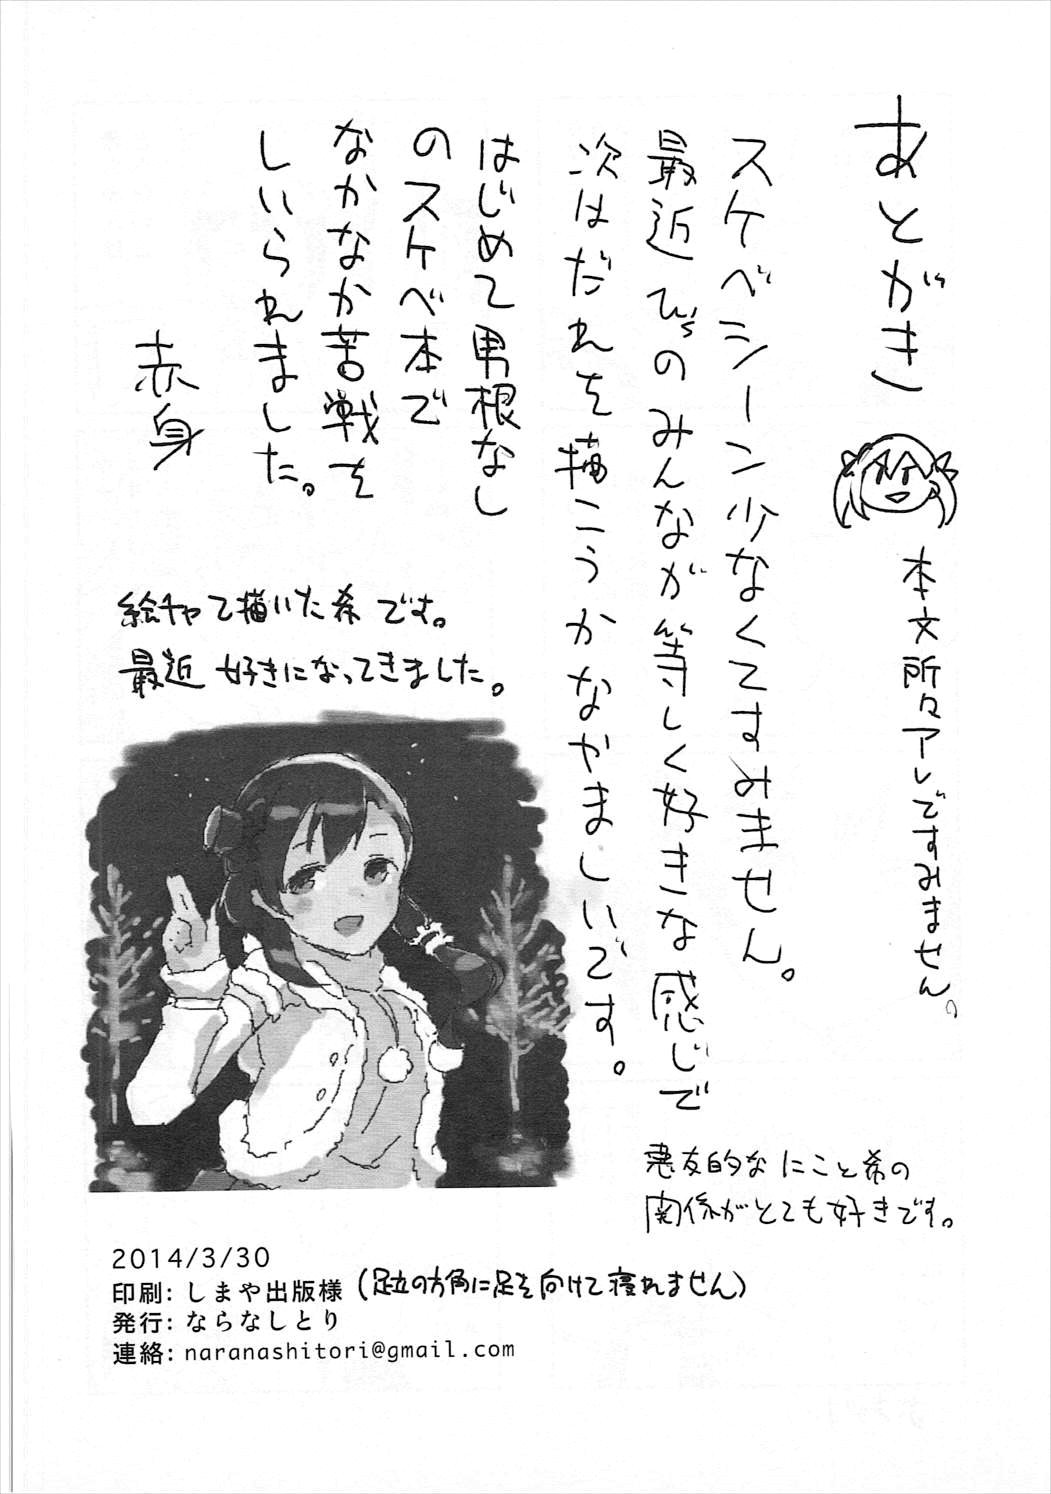 あとがき
本文所々アレですみません。
スケベシーン少なくてすみません。
最近μ'sのみんなが等しく好きな感じで
次はだれを描こうかなやましいです。
はじめて男根なし
のスケベ本で
なかなか苦戦を
しいられました。
赤身
悪友的なにこと希の
関係がとても好きです。
絵チャで描いた希です。
最近好きになってきました。
2014/3/30
印刷: しまや出版様(足立の方角に足を向けて寝れません)
発行: ならなしとり
連絡: naranashitori@gmail.com